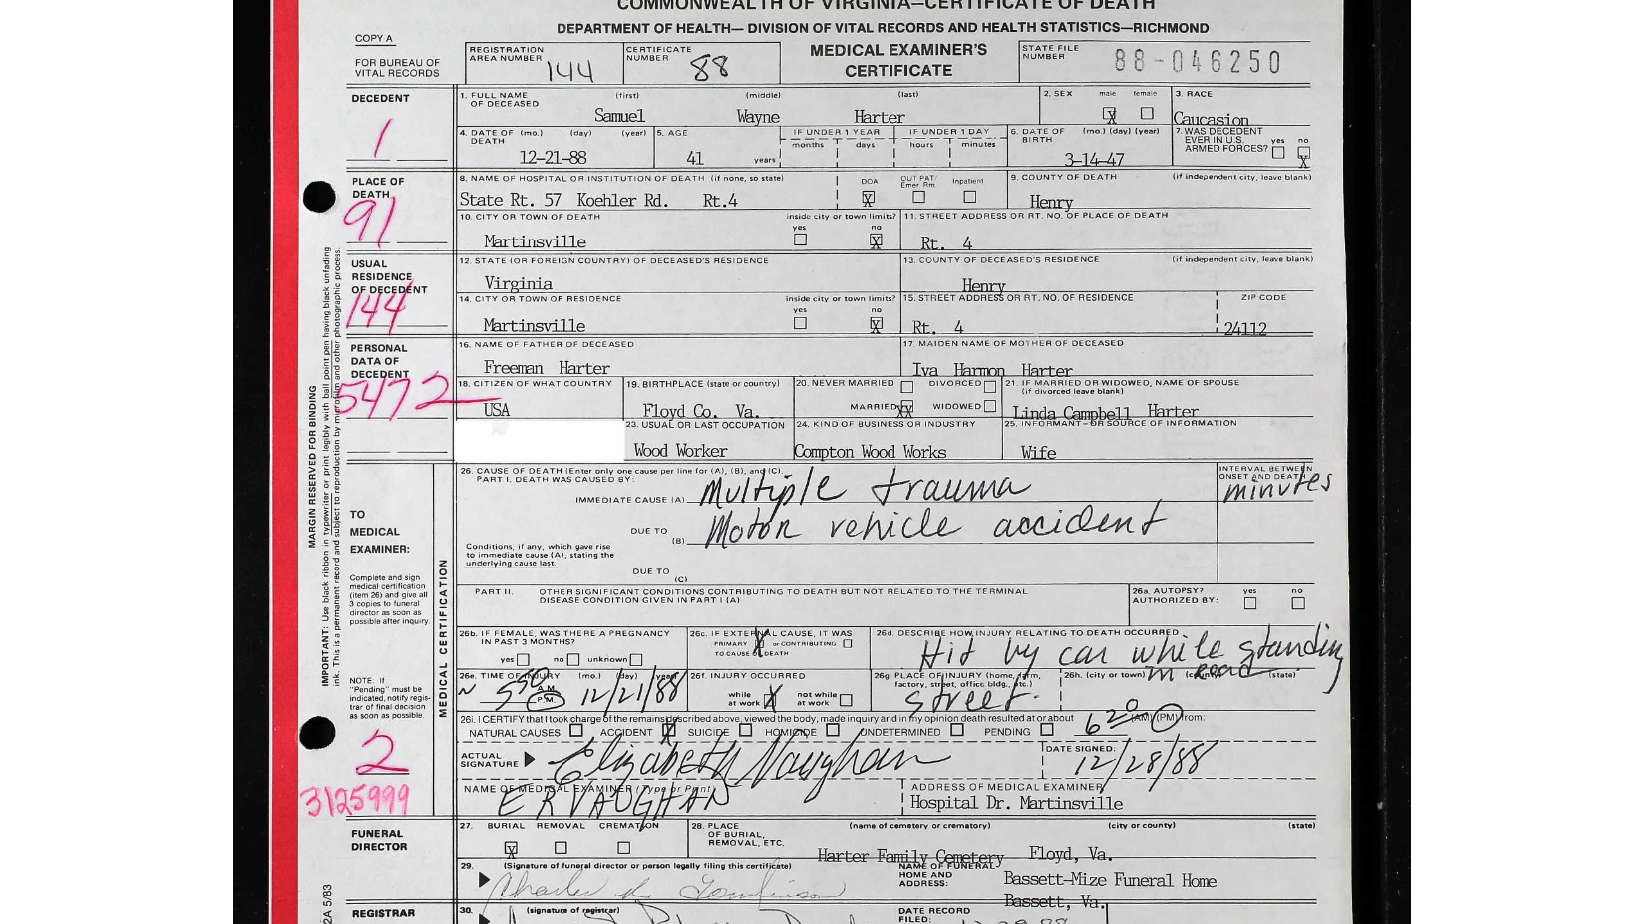 COMMONWEALTH OF VIRGINIA—CERTIFICATE OF DEATH
DEPARTMENT OF HEALTH— DIVISION OF VITAL RECORDS AND HEALTH STATISTICS—RICHMOND
COPY A
FOR BUREAU OF VITAL RECORDS
REGISTRATION AREA NUMBER 144
CERTIFICATE NUMBER 88
MEDICAL EXAMINER'S CERTIFICATE
STATE FILE NUMBER 88-046250
DECEDENT
1
1. FULL NAME OF DECEASED (first) (middle) (last)
Samuel Wayne Harter
2. SEX male X female
3. RACE
Caucasion
4. DATE OF DEATH (mo.) (day) (year)
12-21-88
5. AGE
41 years
IF UNDER 1 YEAR months days
IF UNDER 1 DAY hours minutes
6. DATE OF BIRTH (mo.) (day) (year)
3-14-47
7. WAS DECEDENT EVER IN U.S. ARMED FORCES? yes no X
PLACE OF DEATH
91
8. NAME OF HOSPITAL OR INSTITUTION OF DEATH (if none, so state)
State Rt. 57 Koehler Rd. Rt.4
DOA X OUT PAT/ Emer. Rm. Inpatient
9. COUNTY OF DEATH (if independent city, leave blank)
Henry
10. CITY OR TOWN OF DEATH
Martinsville
inside city or town limit? yes no X
11. STREET ADDRESS OR RT. NO. OF PLACE OF DEATH
Rt. 4
USUAL RESIDENCE OF DECEDENT
144
12. STATE (OR FOREIGN COUNTRY) OF DECEASED'S RESIDENCE
Virginia
13. COUNTY OF DECEASED'S RESIDENCE (if independent city, leave blank)
Henry
14. CITY OR TOWN OF RESIDENCE
Martinsville
inside city or town limits? yes no X
15. STREET ADDRESS OR RT. NO. OF RESIDENCE
Rt. 4
ZIP CODE
24112
PERSONAL DATA OF DECEDENT
5472
16. NAME OF FATHER OF DECEASED
Freeman Harter
17. MAIDEN NAME OF MOTHER OF DECEASED
Iva Harmon Harter
18. CITIZEN OF WHAT COUNTRY
USA
19. BIRTHPLACE (state or country)
Floyd Co. Va.
20. NEVER MARRIED DIVORCED
MARRIED XX WIDOWED
21. IF MARRIED OR WIDOWED, NAME OF SPOUSE
(if divorced leave blank)
Linda Campbell Harter
23. USUAL OR LAST OCCUPATION
Wood Worker
24. KIND OF BUSINESS OR INDUSTRY
Compton Wood Works
25. INFORMANT—OR SOURCE OF INFORMATION
Wife
MARGIN RESERVED FOR BINDING
IMPORTANT: Use black ribbon in typewriter or print legibly with ball point pen having black unfading
ink. This is a permanent record and subject to reproduction by microfilm and other photographic process.
TO MEDICAL EXAMINER:
Complete and sign
medical certification
(item 26) and give all
3 copies to funeral
director as soon as
possible after inquiry.
NOTE: If
"Pending" must be
indicated, notify regis-
trar of final decision
as soon as possible.
MEDICAL CERTIFICATION
26. CAUSE OF DEATH (Enter only one cause per line for (A), (B), and (C).
PART I. DEATH WAS CAUSED BY:
IMMEDIATE CAUSE (A) Multiple trauma
INTERVAL BETWEEN ONSET AND DEATH
minutes
DUE TO (B) Motor vehicle accident
Conditions, if any, which gave rise
to immediate cause (A), stating the
underlying cause last.
DUE TO (C)
PART II. OTHER SIGNIFICANT CONDITIONS CONTRIBUTING TO DEATH BUT NOT RELATED TO THE TERMINAL
DISEASE CONDITION GIVEN IN PART I (A)
26a. AUTOPSY? yes no
AUTHORIZED BY:
26b. IF FEMALE, WAS THERE A PREGNANCY IN PAST 3 MONTHS?
yes no unknown
26c. IF EXTERNAL CAUSE, IT WAS
PRIMARY X or CONTRIBUTING
TO CAUSE OF DEATH
26d. DESCRIBE HOW INJURY RELATING TO DEATH OCCURRED
Hit by car while standing
in road
26e. TIME OF INJURY (mo.) (day) (year)
~ 5 30 A.M. P.M. 12/21/88
26f. INJURY OCCURRED
while at work X not while at work
26g. PLACE OF INJURY (home, farm, factory, street, office bldg., etc.)
street.
26h. (city or town) (county) (state)
26i. I CERTIFY that I took charge of the remains described above, viewed the body, made inquiry and in my opinion death resulted at or about 6 20 (AM) (PM) from:
NATURAL CAUSES ACCIDENT X SUICIDE HOMICIDE UNDETERMINED PENDING
2
3125999
ACTUAL SIGNATURE Elizabeth Vaughan
DATE SIGNED:
12/28/88
NAME OF MEDICAL EXAMINER (Type or Print)
E R VAUGHAN
ADDRESS OF MEDICAL EXAMINER
Hospital Dr. Martinsville
FUNERAL DIRECTOR
27. BURIAL X REMOVAL CREMATION
28. PLACE OF BURIAL, REMOVAL, ETC.
(name of cemetery or crematory) (city or county) (state)
Harter Family Cemetery Floyd, Va.
29. (Signature of funeral director or person legally filing this certificate)
NAME OF FUNERAL HOME AND ADDRESS:
Bassett-Mize Funeral Home
Bassett, Va.
REGISTRAR
30. (signature of registrar)
DATE RECORD FILED:
2A 5/83